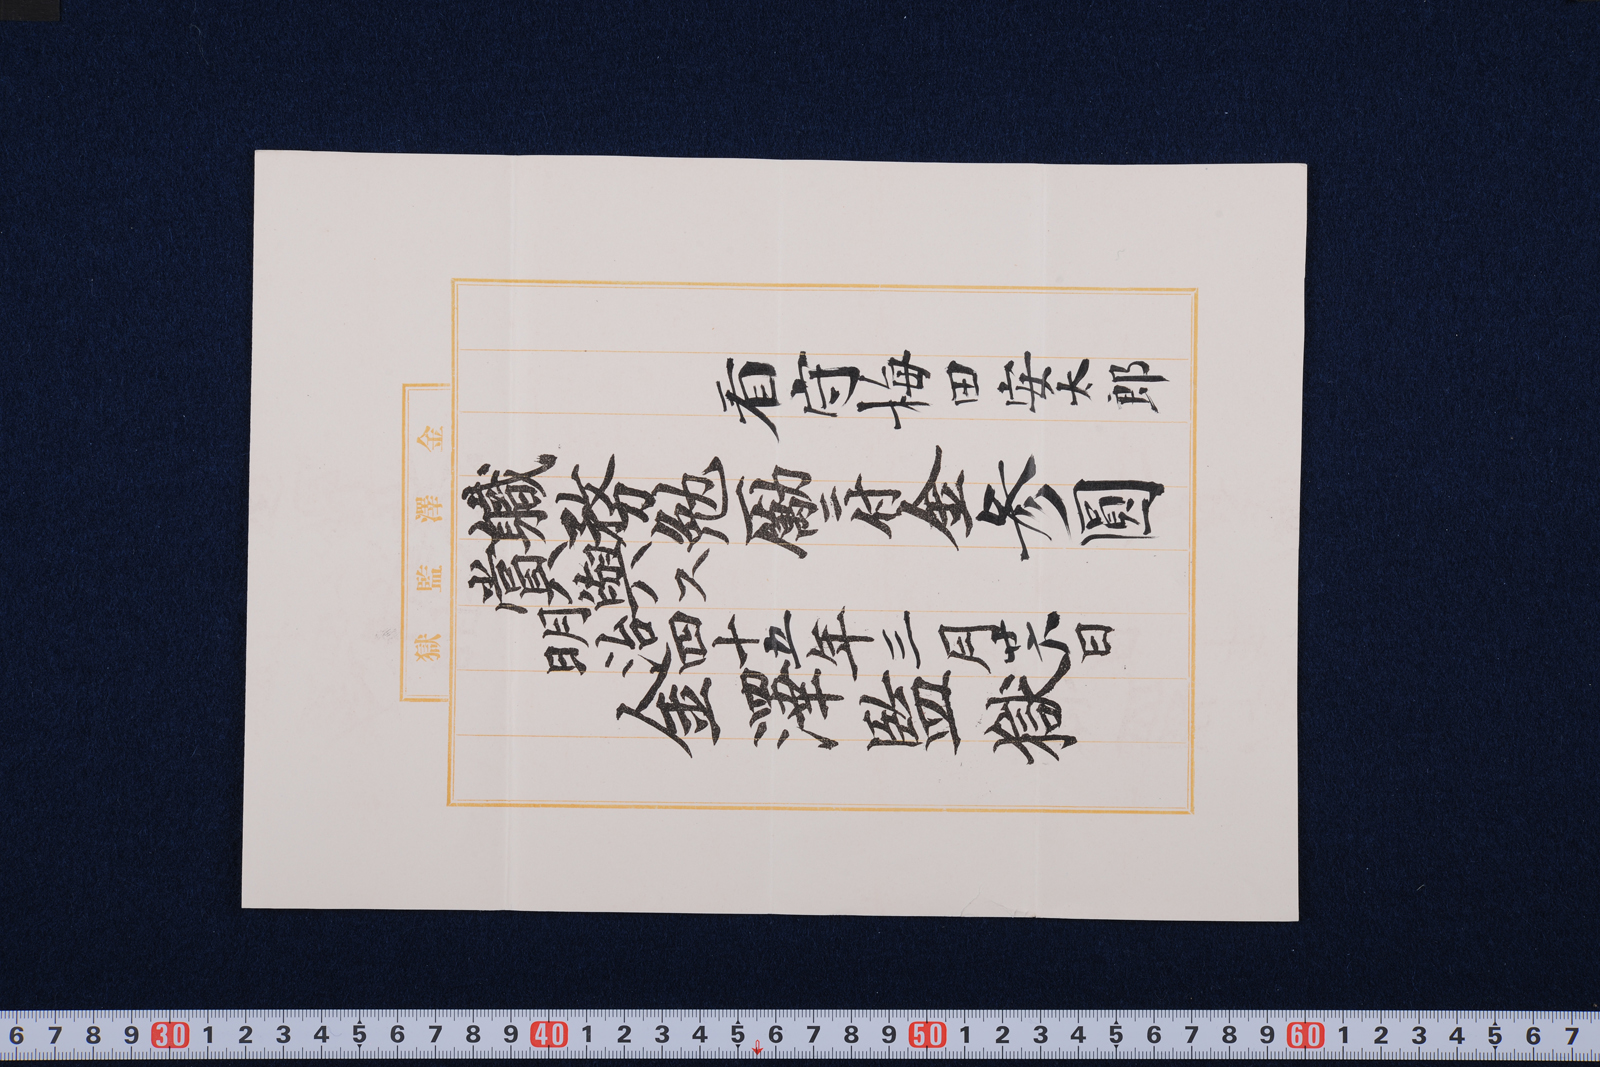 看守梅田安太郎
職務勉勵ニ付金参圓
賞與ス
明治四十五年三月廿六日
金澤監獄
金澤監獄
6 7 8 9 30 1 2 3 4 5 6 7 8 9 40 1 2 3 4 5 6 7 8 9 50 1 2 3 4 5 6 7 8 9 60 1 2 3 4 5 6 7